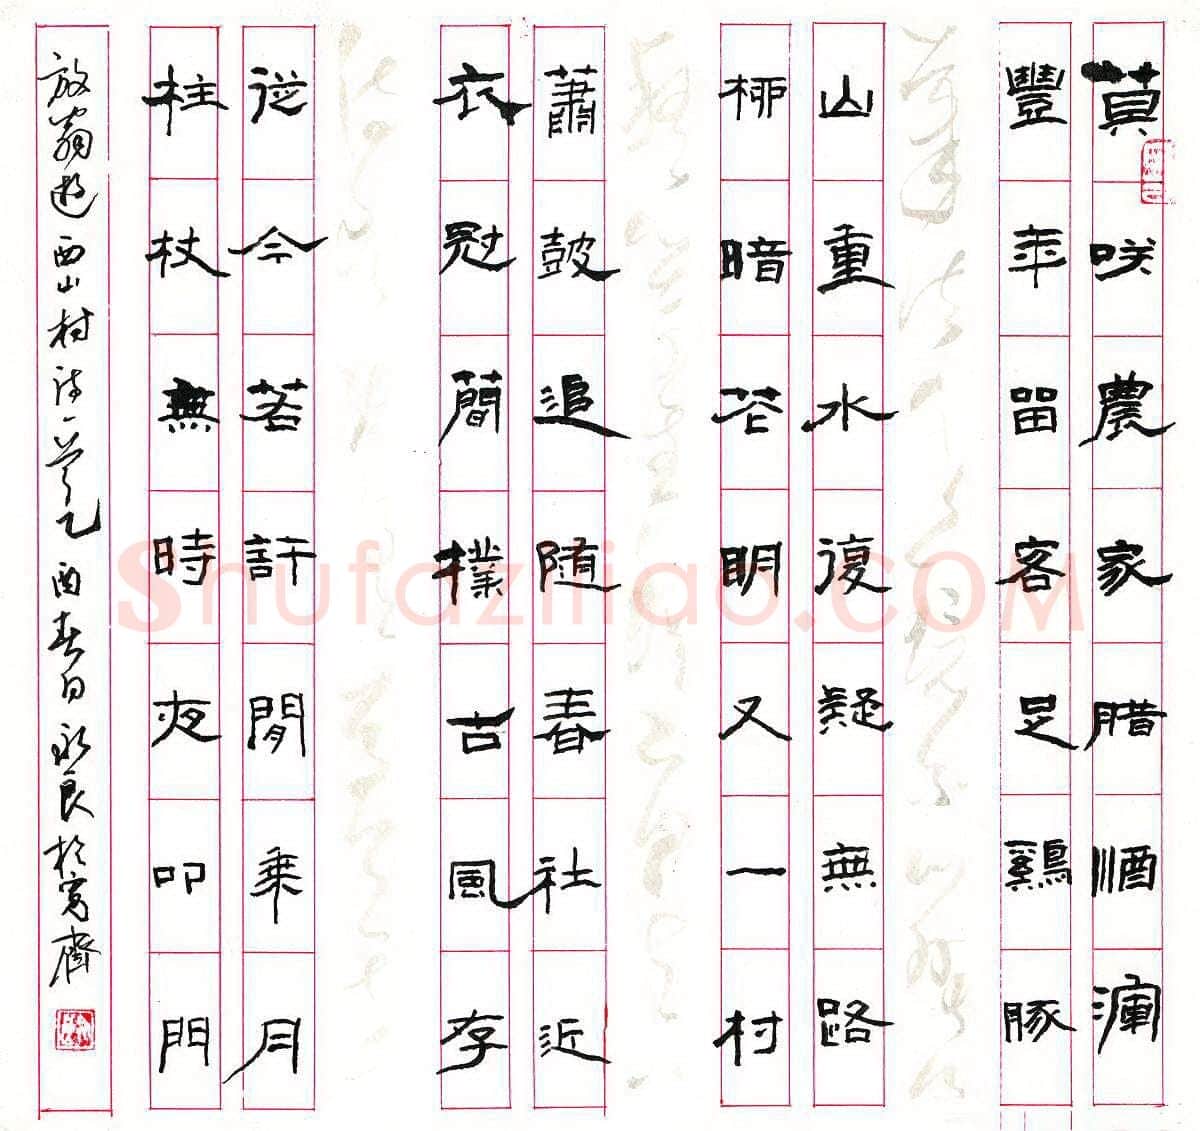 莫咲農家腊酒渾
豐年留客足鷄豚
山重水復疑無路
柳暗花明又一村
蕭鼓追随春社近
衣冠簡樸古風存
從今若許閒乘月
柱杖無時夜叩門
放翁遊西山村詩一首乙酉春日永良於寬齋
Shufaziliao.COM